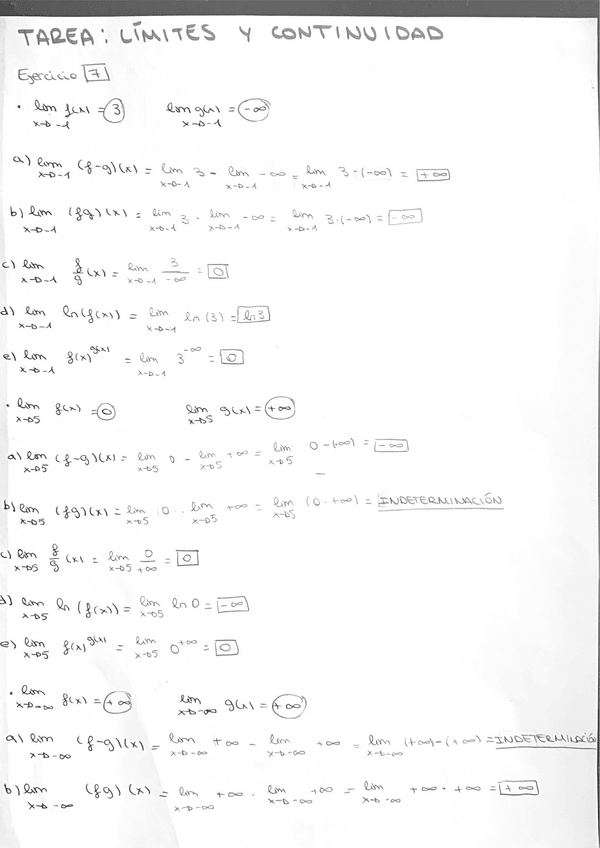 TAREA: LÍMITES Y CONTINUIDAD
Ejercicio 7
• lim x→-1 f(x) = 3 lim x→-1 g(x) = -∞
a) lim x→-1 (f-g)(x) = lim x→-1 3 - lim x→-1 -∞ = lim x→-1 3-(-∞) = +∞
b) lim x→-1 (fg)(x) = lim x→-1 3 · lim x→-1 -∞ = lim x→-1 3·(-∞) = -∞
c) lim x→-1 f/g (x) = lim x→-1 3/-∞ = 0
d) lim x→-1 ln(f(x)) = lim x→-1 ln(3) = ln3
e) lim x→-1 f(x)^g(x) = lim x→-1 3^-∞ = 0
• lim x→5 f(x) = 0 lim x→5 g(x) = +∞
a) lim x→5 (f-g)(x) = lim x→5 0 - lim x→5 +∞ = lim x→5 0-(+∞) = -∞
b) lim x→5 (fg)(x) = lim x→5 0 · lim x→5 +∞ = lim x→5 (0·+∞) = INDETERMINACIÓN
c) lim x→5 f/g (x) = lim x→5 0/+∞ = 0
d) lim x→5 ln (f(x)) = lim x→5 ln 0 = -∞
e) lim x→5 f(x)^g(x) = lim x→5 0^+∞ = 0
• lim x→-∞ f(x) = +∞ lim x→-∞ g(x) = +∞
a) lim x→-∞ (f-g)(x) = lim x→-∞ +∞ - lim x→-∞ +∞ = lim x→-∞ (+∞)-(+∞) = INDETERMINACIÓN
b) lim x→-∞ (fg)(x) = lim x→-∞ +∞ · lim x→-∞ +∞ = lim x→-∞ +∞ · +∞ = +∞